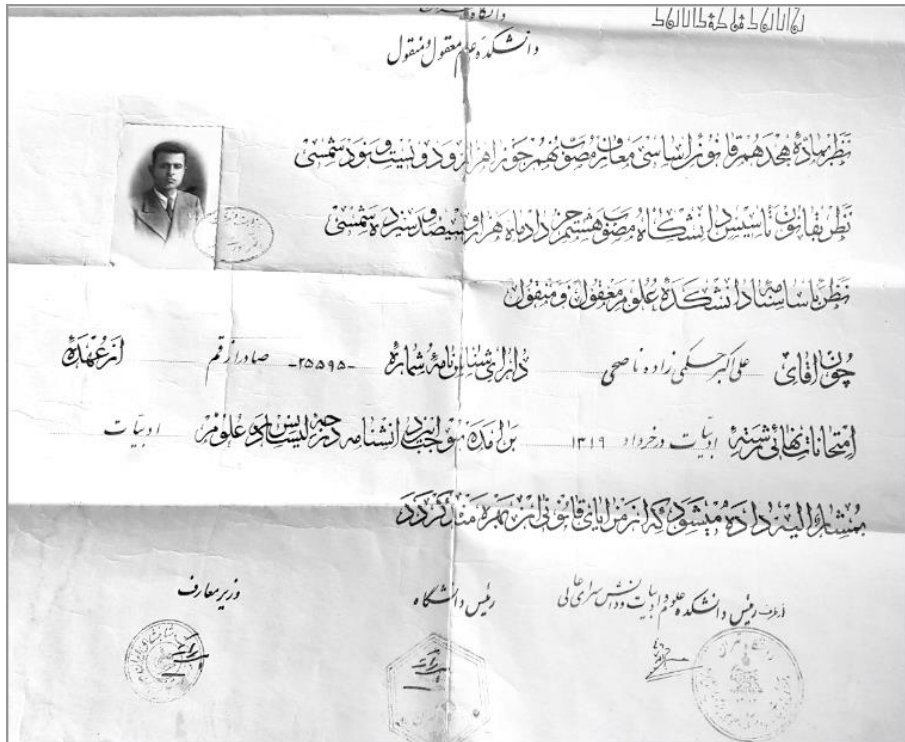 دانشگاه تهران
دانشکده علوم معقول و منقول
نظر بماده هجدهم قانون اساسی معارف مصوب نهم جوزا هزار و دویست و نود شمسی
نظر بقانون تاسیس دانشگاه مصوب هشتم خرداد ماه هزار و سیصد و سیزده شمسی
نظر باساسنامه دانشکده علوم معقول و منقول
چون آقای علی اکبر حکمی زاده ناصحی دارای شناسنامه شماره -۲۵۵۹۵- صادر از قم از عهده
امتحانات نهائی رشته ادبیات در خرداد ۱۳۱۹ برآمده بموجب این دانشنامه درجه لیسانس در علوم ادبیات
بمشارالیه داده میشود که از مزایای قانونی آن بهره مند گردد
از طرف رئیس دانشکده علوم و ادبیات و دانش سرای عالی
رئیس دانشگاه
وزیر معارف